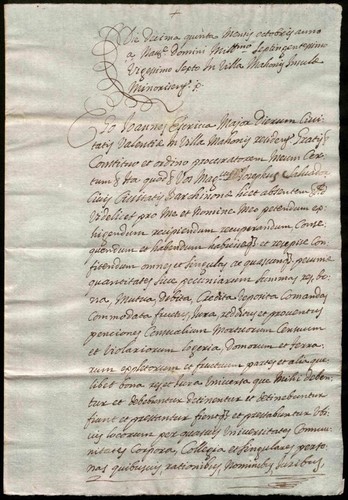 Die decima quinta Mensis octobris anno
a Nat.e Domini Mill.mo Septingentesimo
Vigesimo Septo In Villa Mahonis Insulæ
Minoricæ
Ego Joannes Major Dierum Civi
tatis Valentiæ in Villa Mahonis residens Gratis
Constituo et ordino procuratorem Meum Cer
tum Ita quod Vos Josephus Salvador
Civis Civitatis Barchinonæ licet absentem
Videlicet pro Me et Nomine Meo petendum ex
higendum recipiendum recuperandum Conse
quendum et habendum habuisseq et recepisse Con
fitendum omnes et singulas ac quascumq pecuniæ
quantitates sive pecuniarum summas res, bo
na, Mutua, debita, Credita deposita Comandas
Commodata fructus, Jura, redditus et proventus
penciones Censualium Mortuorum Censuum
et Violariorum logeria, domorum et terra
rum expletorum et fructuum partes et alia que
libet bona res et Jura Universa que Mihi deben
tur et debebuntur detinentur et detinebuntur
fiunt et prestantur fient et prestabuntur Ubi
vis locorum per quosvis Universitates Commu
nitates Corpora, Collegia et singulares perso
nas quibusvis rationibus Nominibus Juribus